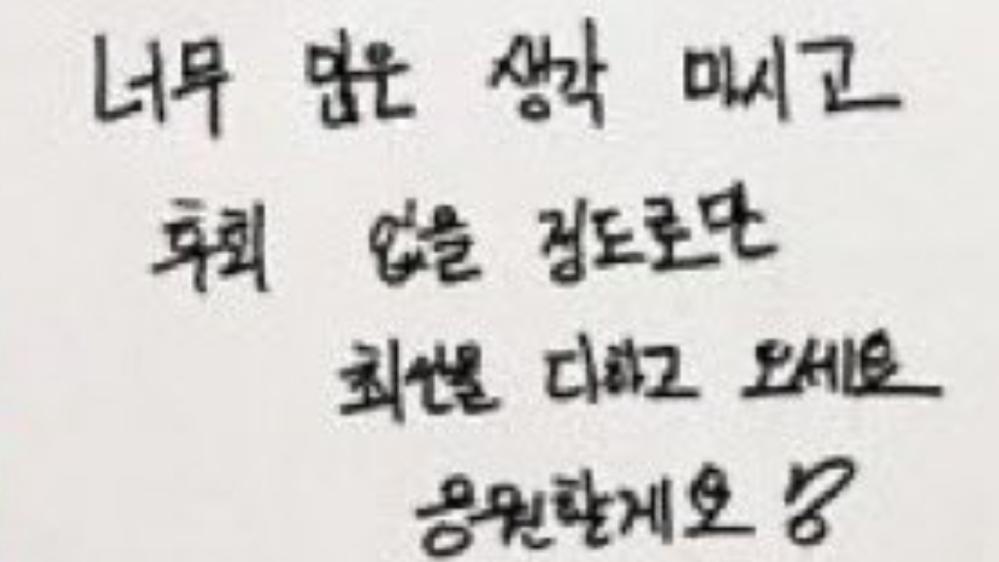 너무 많은 생각 마시고
후회 없을 정도로만
최선을 다하고 오세요
응원할게요